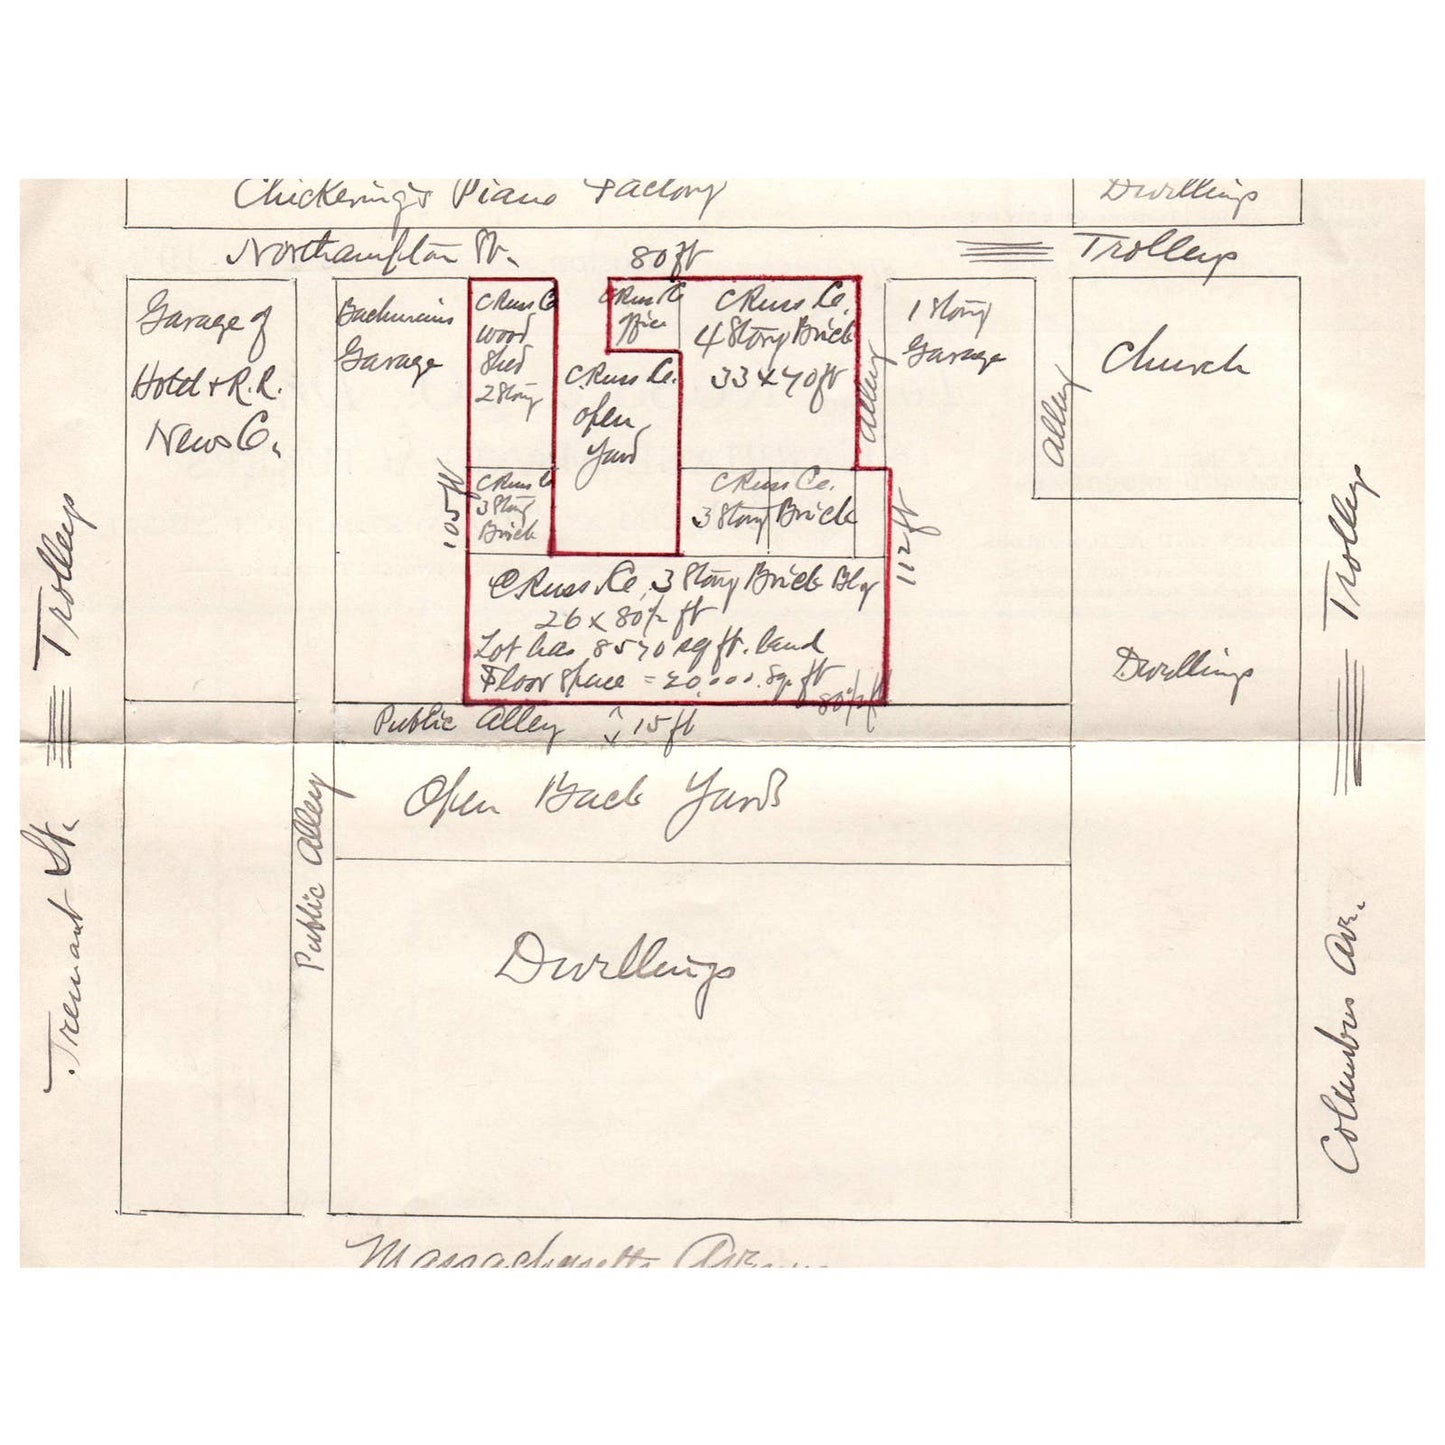 Chickering's Piano Factory
Dwellings
Northampton St.
80 ft
Trolleys
Garage of
Hotel & R.R.
News Co.
Garage
C Russ Co
wood
shed
2 Story
C Russ Co
office
C Russ Co.
4 Story Brick
33 x 70 ft
Alley
1 Story
Garage
Alley
Church
C. Russ Co.
open
Yard
C Russ Co
3 Story
Brick
C Russ Co.
3 Story Brick
105 ft
112 ft
C Russ Co. 3 Story Brick Bldg
26 x 80 1/2 ft
Lot has 8570 sq ft. land
Floor space = 20,000. sq. ft
80 1/2 ft
Dwellings
Public Alley 15 ft
Open Back Yards
Public Alley
Dwellings
Tremont St. Trolleys
Columbus Ave. Trolleys
Massachusetts Avenue